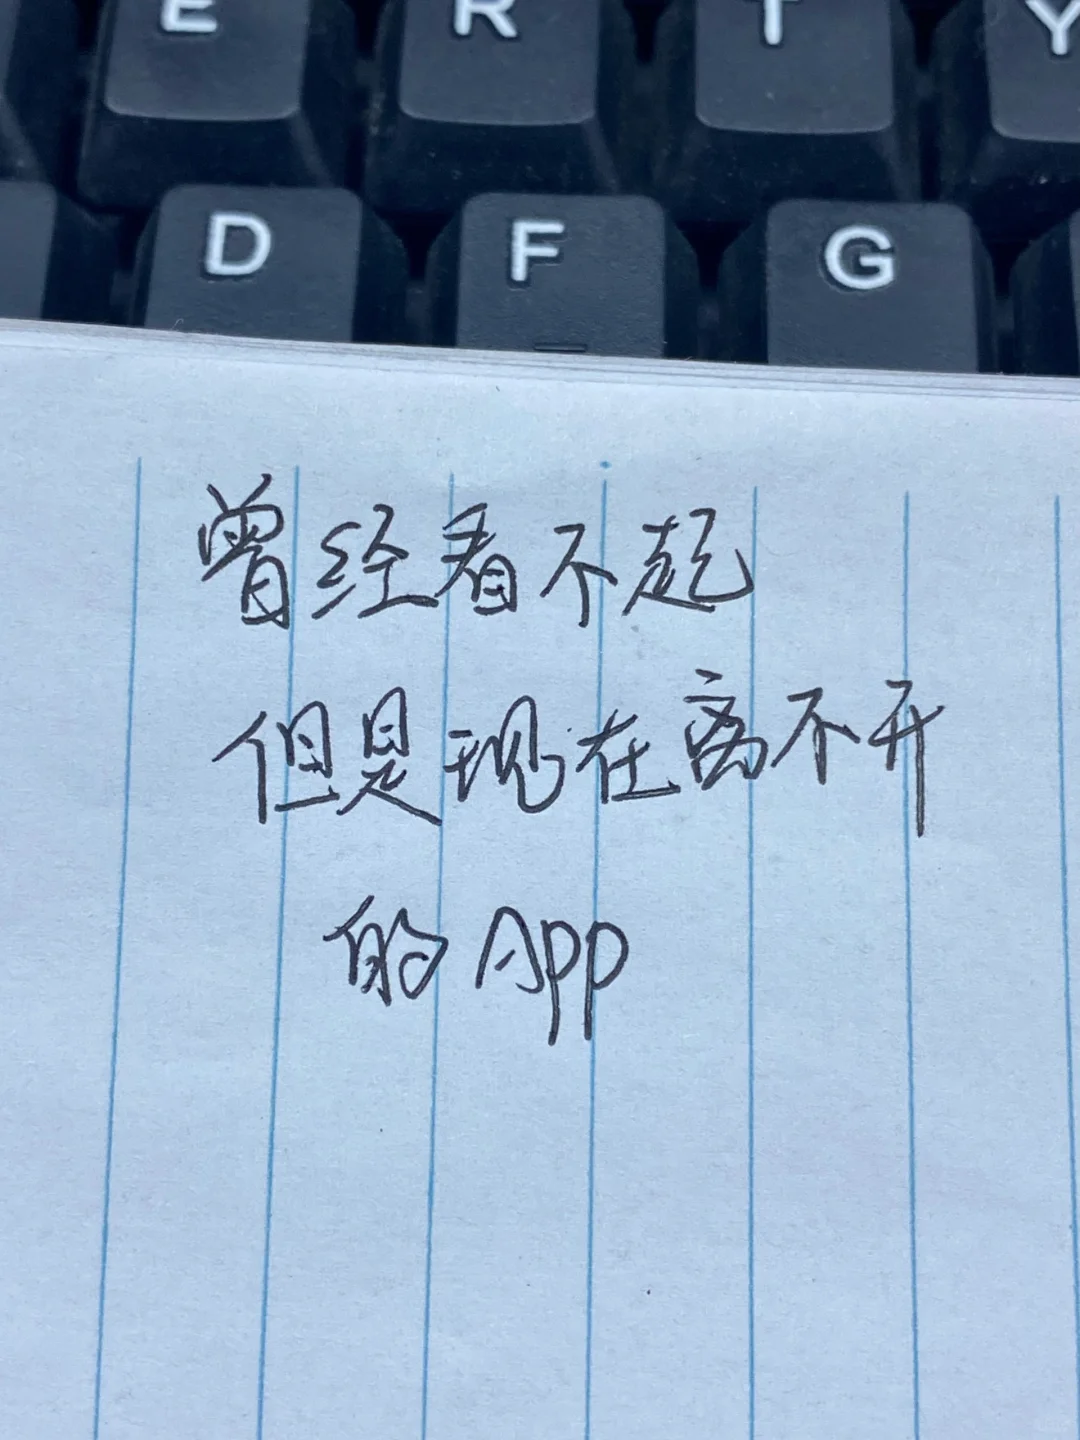 E R T Y
D F G
曾经看不起
但是现在离不开
的App